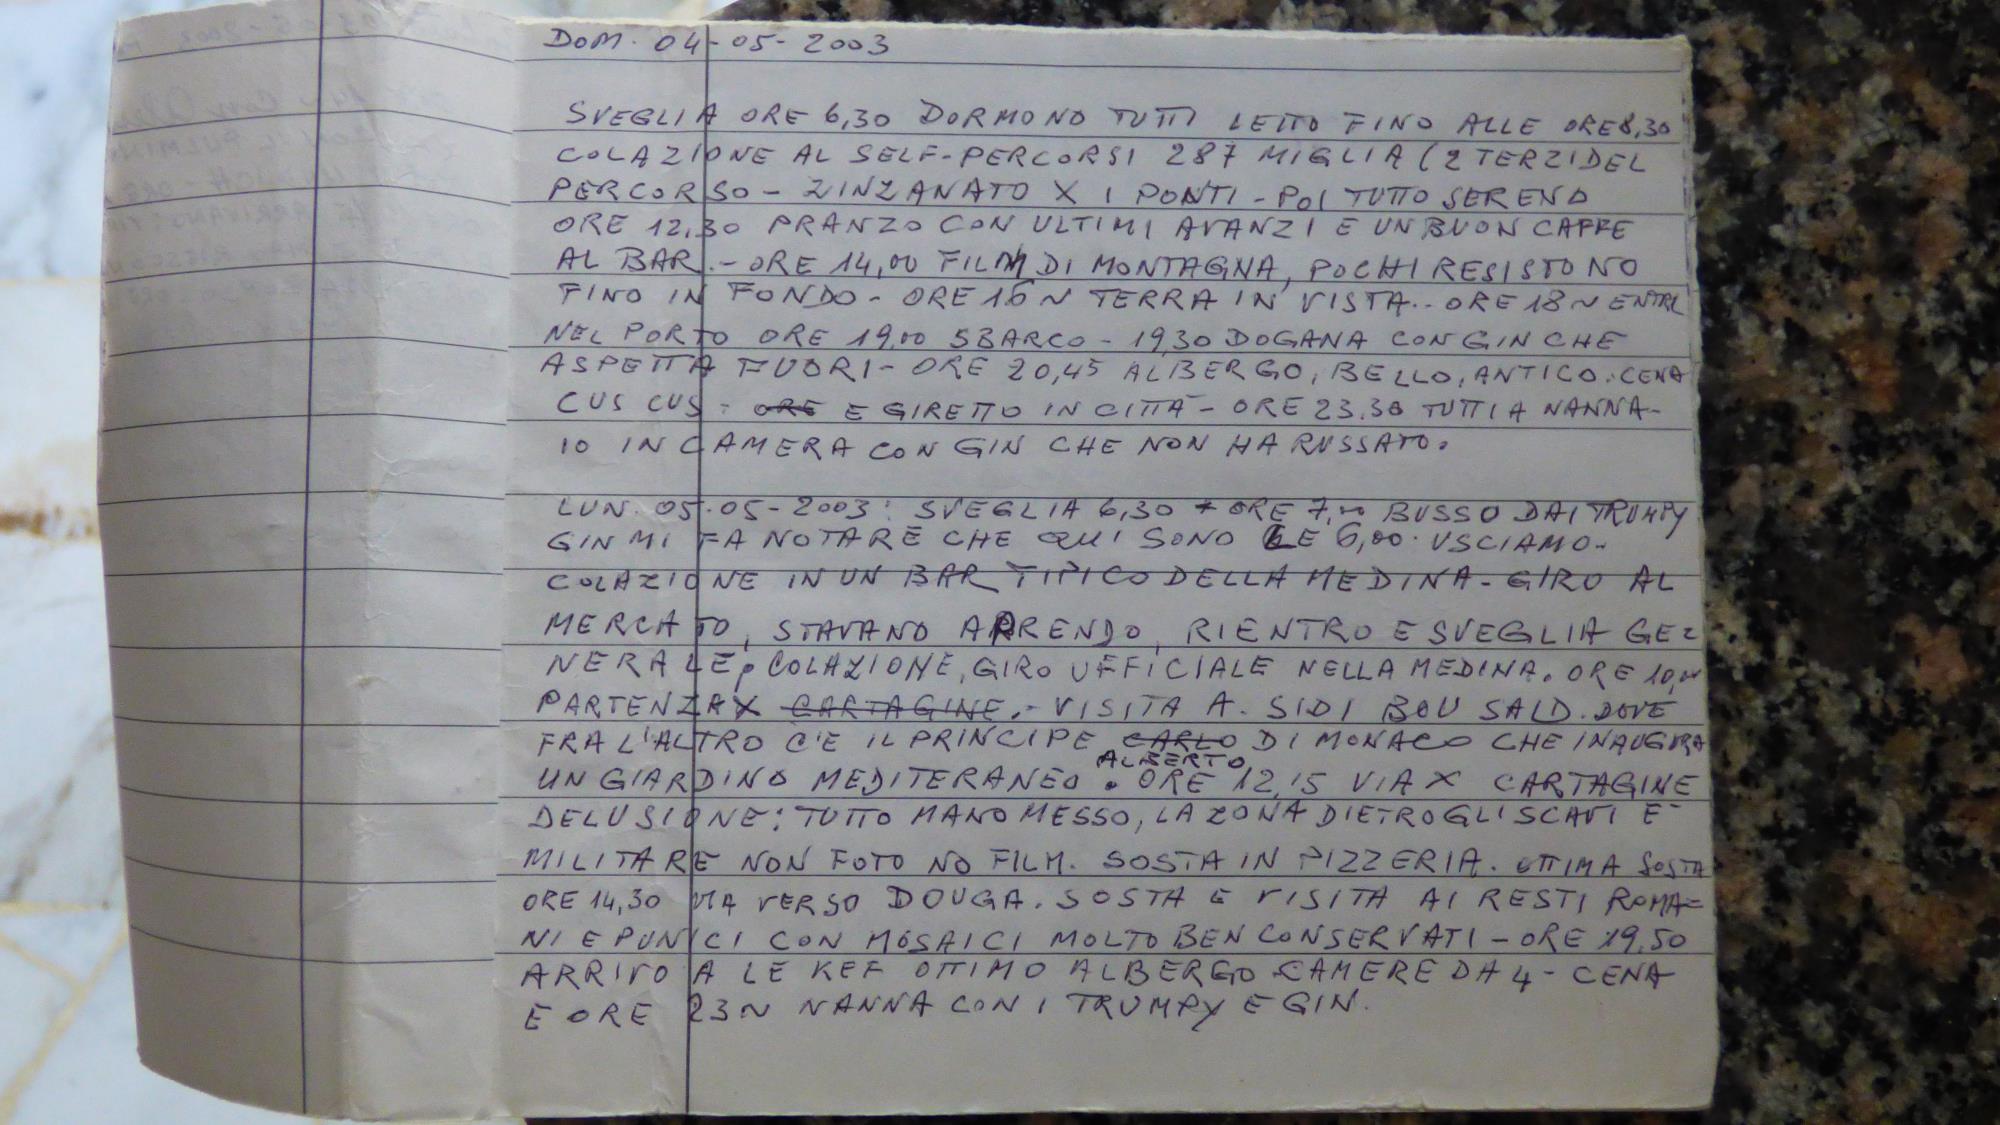 DOM. 04-05-2003
SVEGLIA ORE 6,30 DORMONO TUTTI LETTO FINO ALLE ORE 8,30
COLAZIONE AL SELF-PERCORSI 287 MIGLIA (2 TERZI DEL
PERCORSO - ZINZANATO X I PONTI - POI TUTTO SERENO
ORE 12,30 PRANZO CON ULTIMI AVANZI E UN BUON CAFFE
AL BAR.- ORE 14,00 FILM DI MONTAGNA, POCHI RESISTONO
FINO IN FONDO - ORE 16 N TERRA IN VISTA.- ORE 18 N ENTRI
NEL PORTO ORE 19,00 SBARCO - 19,30 DOGANA CON GIN CHE
ASPETTA FUORI - ORE 20,45 ALBERGO, BELLO, ANTICO. CENA
CUS CUS - ORE E GIRETTO IN CITTÀ - ORE 23.30 TUTTI A NANNA-
IO IN CAMERA CON GIN CHE NON HA RUSSATO.
LUN. 05.05-2003: SVEGLIA 6,30 + ORE 7,00 BUSSO DAI TRUMPY
GIN MI FA NOTARE CHE QUI SONO LE 6,00. USCIAMO.
COLAZIONE IN UN BAR TIPICO DELLA MEDINA - GIRO AL
MERCATO, STAVANO APRENDO, RIENTRO E SVEGLIA GE=
NERALE, COLAZIONE, GIRO UFFICIALE NELLA MEDINA. ORE 10,00
PARTENZA X CARTAGINE.- VISITA A. SIDI BOU SALD. DOVE
FRA L'ALTRO C'E IL PRINCIPE CARLO DI MONACO CHE INAUGURA
ALBERTO
UN GIARDINO MEDITERANEO. ORE 12,15 VIA X CARTAGINE
DELUSIONE: TUTTO MANOMESSO, LA ZONA DIETRO GLI SCAVI E'
MILITARE NON FOTO NO FILM. SOSTA IN PIZZERIA. OTTIMA SOSTA
ORE 14,30 VIA VERSO DOUGA. SOSTA E VISITA AI RESTI ROMA=
NI E PUNICI CON MOSAICI MOLTO BEN CONSERVATI - ORE 19,50
ARRIVO A LE KEF OTTIMO ALBERGO CAMERE DA 4 - CENA
E ORE 23 N NANNA CON I TRUMPY E GIN.